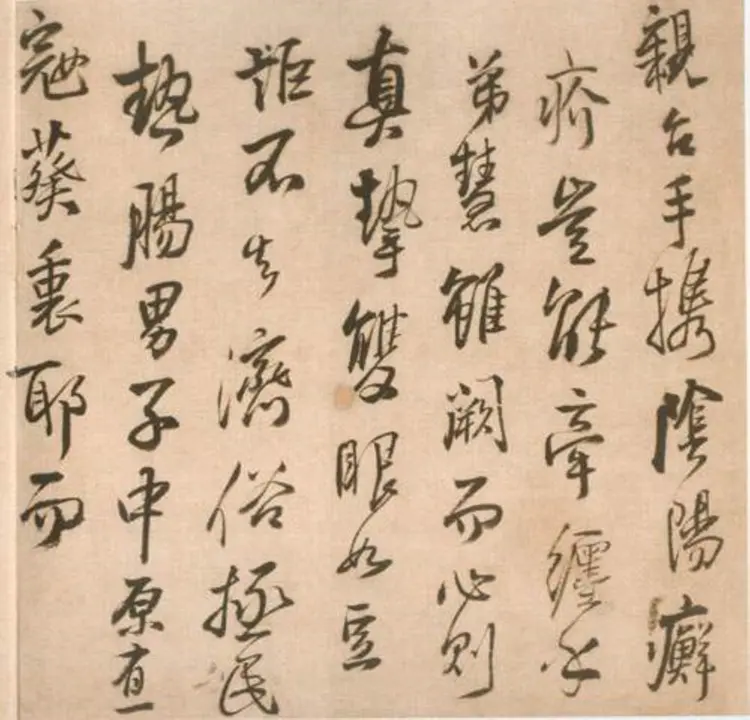 親台手攜陰陽癬
疥豈能牽纏乎
弟慧雖闕而心則
真摯雙眼如豆
詎不失濟俗拯民
熱腸男子中原直
寇葵裏耶而